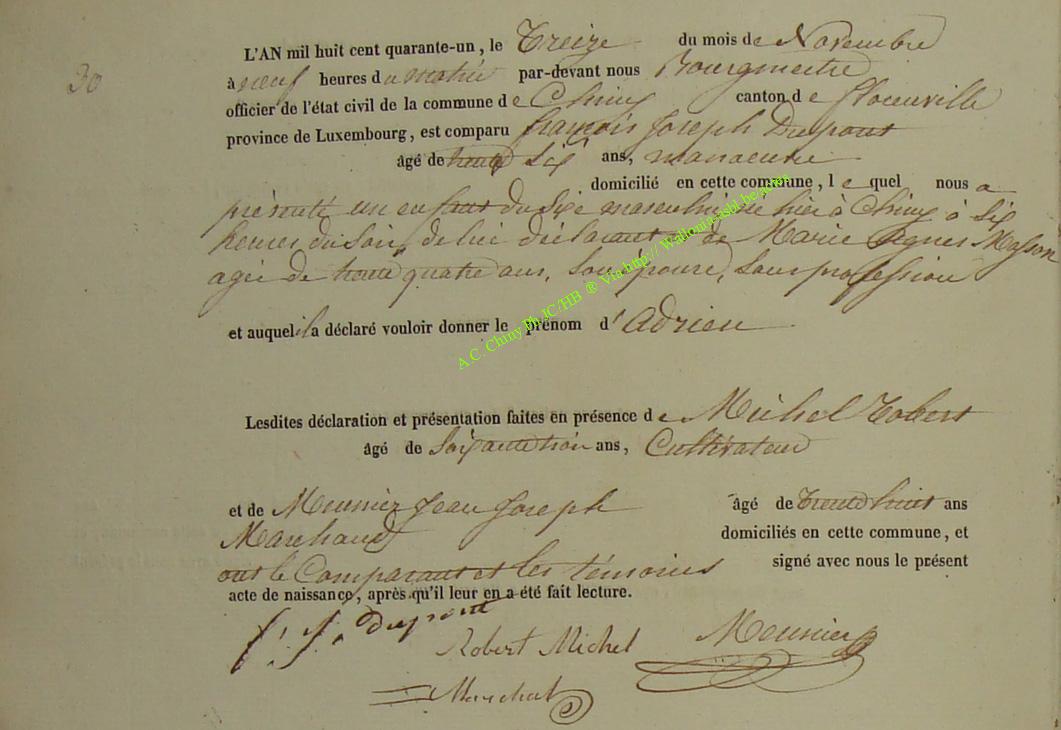 30
L'AN mil huit cent quarante-un, le Treize du mois de Novembre
à neuf heures du matin par-devant nous Bourgmestre
officier de l'état civil de la commune de Chiny canton de florenville
province de Luxembourg, est comparu françois Joseph Dupont
âgé de trente six ans, manoeuvre
domicilié en cette commune, lequel nous a
présenté un enfant du sexe masculin né hier à Chiny à six
heures du soir, de lui déclarant et de Marie Agnes Masson
agée de trente quatre ans, son épouse, sans profession
et auquel il a déclaré vouloir donner le prénom d'Adrien
Lesdites déclaration et présentation faites en présence de Michel Robert
âgé de soixante trois ans, Cultivateur
et de Meunier Jean Joseph âgé de trente huit ans
Marchand domiciliés en cette commune, et
ont le Comparant et les témoins signé avec nous le présent
acte de naissance, après qu'il leur en a été fait lecture.
f. J. dupont
Robert Michel Meunier
Marchal
A.C. Chiny Ph JC/HB ® Via http://Wallonia-asbl.be.com